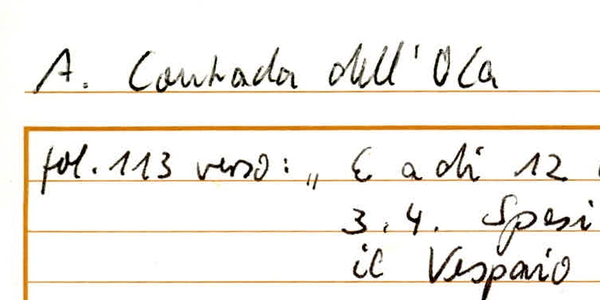 A. Contrada dell'Oca
fol. 113 verso: „ E a di 12
3.4. Spesi
il Vespaio